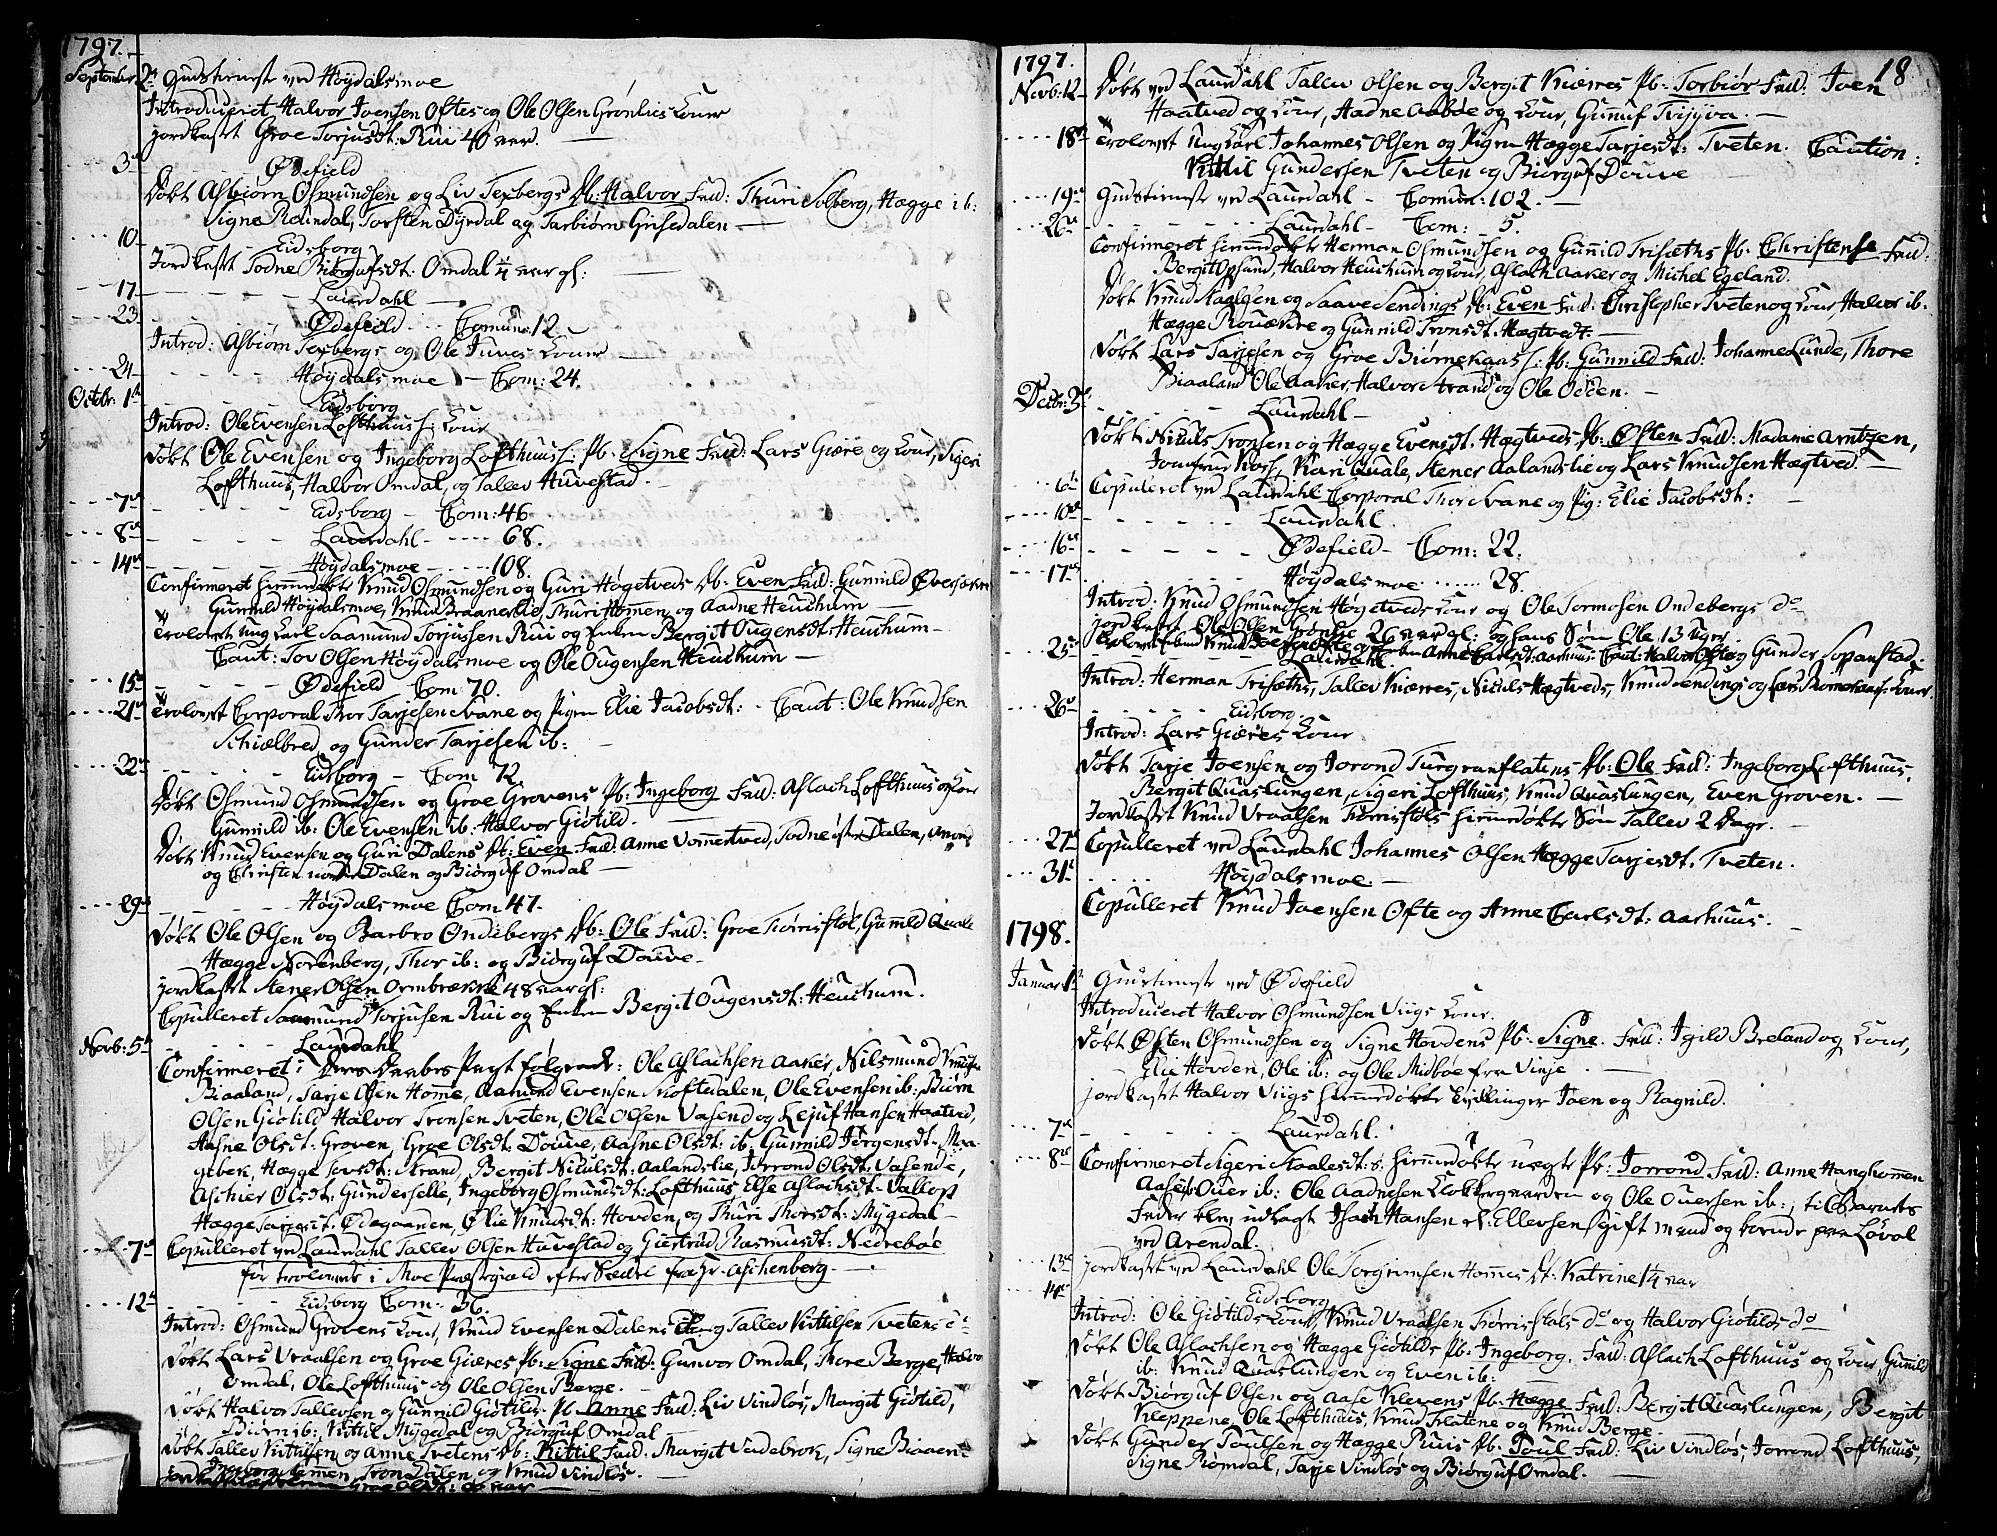 1797.
September 2den Gudstieneste ved Høydalsmoe
Introduceret Halvor Joensen Oftes og Ole Olsen Grønlies Koner
Jordkastet Groe Torjusdt: Rui 40 aar.
3die Ødefield
Døbt Asbiørn Osmundsen og Liv Texbergs Pb: Halvor Fad: Thuri Solberg, Hægge ib:
Signe Reindal, Torsten Dyrdal og Tarbiørn Grisedalen —
10 Eidsborg
Jordkastet Todne Biørgufsdt: Omdal 1/4 aar gl:
17 Laurdahl —
23 Ødefield — Comun: 12
Introd: Asbiørn Texbergs og Ole Juves Koner —
24 Høydalsmoe — Com: 24.
Octbr: 1ste Eidsborg
Introd: Ole Evensen Lofthuus Kone
Døbt Ole Evensen og Ingeborg Lofthuus Pb. Signe Fad: Lars Giære og Kone, Sigeri
Lofthuus, Halvor Omdal, og Tallev Huvestad. —
7de Eidsborg — Com: 46
8de Laurdahl — 68.
14de Høydalsmoe — 108.
Confirmeret hiemmedøbte Knud Osmundsen og Guri Høgetveds Pb. Even Fad: Gunnild
Gunnild Høydalsmoe, Knud Braaneslie, Thuri Homen, og Aadne Heuchum —
Trolovet ung Karl Saamund Torjussen Rui og Enken Bergit Ougensdt: Heuchum —
Caut: Tov Olsen Høydalsmoe og Ole Ougensen Heuchum —
15de Ødefield Com 70.
21de Trolovet Corporal Thor Tarjesen Svane og Pigen Elie Jacobsdt: — Caut: Ole Knudsen
Schiælbred og Gunder Tarjesen ib: —
22de Eidsborg — Com 72.
Døbt Osmund Osmundsen og Groe Grovens Pb: Ingeborg Fad: Aslach Lofthuus og Kone
Gunnild ib: Ole Evensen ib: Halvor Giøtild. —
Døbt Knud Evensen og Guri Dalens Pb: Even Fad: Anne Vommestved, Todne Dalen,
og Christen Dalen og Biørguf Omdal —
29de Høydalsmoe Com 47.
Døbt Ole Olsen og Barbro Ondebergs Pb: Ole Fad: Groe Tiørristøl, Gunnild Quale
Hægge Norenberg, Thor ib: og Biørguf Douve —
Jordkastet Stener Olsen Ormbrække 48 aar gl:
Copulleret Saamund Torjusen Rui og Enken Bergit Ougensdt: Heuchum.
Novb: 5te Laurdahl
Confirmeret følgende: Ole Aslachsen Aaker, Nilsmund
Biaaland, Tarje Olsen Homme, Aamund Evensen Skoftedalen, Ole Evensen ib: Biørn
Olsen Giøtild Halvor Tronsen Tveten, Ole Olsen Vasend og Lejuf Hansen Haatved,
Aasne Olsdt: Groven, Groe Olsdt: Douve, Aasne Olsdt: ib: Gunnild Jørgensdt:
Hægge Tovsdt: Strand, Bergit Niculsdt: Aalandslie, Jorrond Olsdt: Vasende,
Aschier Olsdt: Gunderselle, Ingeborg Osmundsdt: Lofthuus, Else Aslachsdt: Vallosf
Hægge Tarjesdt: Ødegaarden, Elie Knudsdt: Hovden, og Thuri Thorsdt: Mygedal —
7de Copulleret ved Laurdahl Tallev Olsen Huvestad og Giertrud Rasmusdt: Nedrebøe
før trolovede i Moe Præstegiæld efter Seddel fra Hr. Aschenberg —
12te Eidsborg Com: 36.
Introd: Osmund Grovens Kone, Knud Evensen Dalens og Tallev Kittilsen Tvetens do
Døbt Lars Vraalsen og Groe Giæres Pb: Signe Fad: Gunvor Omdal, Thore Berge, Halvor
Omdal, Ole Lofthuus og Ole Olsen Berge. —
Døbt Halvor Tallevsen og Gunnild Giøtilds Pb. Anne Fad: Liv Vindløs, Margit Giøtild,
Biørn ib: Kittil Mygedal og Biørguf Omdal —
Døbt Tallev Kittilsen og Anne Tvetens Pb: Kittil Fad: Margit Sudebrok, Signe
Ingeborg Homen, Tron Dalen og Knud Vindløs.
18
1797.
Novb: 12 Døbt ved Laurdahl Tallev Olsen og Bergit Kiæres Pb: Torbiør Fad: Joen
Haatved og Kone, Aadne Aabøe og Kone, Gunuf Tvijyva. —
18de Trolovet Ungkarl Johannes Olsen og Pigen Hægge Tarjesdt: Tveten. Caution:
Kittil Gundersen Tveten og Biørguf Douve
19de Gudstieneste ved Laurdahl — Comun: 102. —
26de Laurdahl — Com: 5.
Confirmeret hiemmedøbte Herman Osmundsen og Gunnild Trisæths Pb: Christense Fad:
Bergit Opsund, Halvor Heuchum og Kone, Aslach Aaker og Michel Egeland.
Døbt Knud Staalesen og Saave Sendings Pb: Even Fad: Christopher Tveten og Kone Halvor ib.
Hægge Rouækre og Gunnild Tronsdt: Hægtvedt. —
Døbt Lars Tarjesen og Groe Biørnekaas Pb: Gunnild Fad: Johanne Lunde, Thore
Biaaland, Ole Aaker, Halvor Strand og Ole Odden. —
Decbr: 3die Laurdahl —
Døbt Niculs Tronsen og Hægge Evensdt: Hægtveds Pb: Østen Fad: Madame Arntzen,
Jomfrue Kars, Kari Quale, Stener Aalandslie og Lars Knudsen Hægtved. —
6te Copuleret ved Laurdahl Corporal Thor Svane og Pig: Elie Jacobsdt:
10de Laurdahl.
16de Ødefield — Com: 22.
17de Høydalsmoe — 28.
Introd: Knud Osmundsen Høgetveds Kone og Ole Tormosen Ondebergs do
Jordkastet Ole Olsen Grønlie 26 aar gl: og hans Søn Ole 13 Uger
25de Laurdahl.
Introd: Herman Trisæths, Tallev Kiæres, Niculs Hægtveds, Knud Sendings og Lars Biørnekaas Koner.
26de Eidsborg.
Introd: Lars Giæres Kone
Døbt Tarje Joensen og Jorond Turgranflatens Pb: Ole Fad: Ingeborg Lofthuus,
Bergit Quaslungen, Sigeri Lofthuus, Knud Quaslungen, Even Groven. —
Jordkastet Knud Vraalsen Tiørristøls hiemmedøbte Søn Tallev 2 Dage. —
27de Copulleret ved Laurdahl Johannes Olsen Hægge Tarjesdt: Tveten.
31te Høydalsmoe. —
Copulleret Knud Joensen Ofte og Anne Carlsdt: Aarhuus. —
1798.
Januar 1ste Gudstieneste ved Ødefield
Introduceret Halvor Osmundsen Viigs Kone.
Døbt Østen Osmundsen og Signe Hovdens Pb. Signe. Fad: Igild Breland og Kone,
Elie Hovden, Ole ib: og Ole Midbøe fra Vinje. —
Jordkastet Halvor Viigs hiemmedøbte Tvillinger Joen og Ragnild.
7de Laurdahl.
8de Confirmeret Sigeri Staalesdt: s: hiemmedøbte uægte Pb: Jorrond Fad: Anne Hanghommen
Aase Ouer ib: Ole Aadnesen Klokkergaarden og Ole Ouersen ib: til Barnets
Fader blev udlagt Isach Hansen el: Ellevsen gift mand og boende paa Løvøl
ved Arendal.
13de Jordkastet ved Laurdahl Ole Torgrimsen Hommes Dt: Katrine 1/4 aar
14de Eidsborg
Introd: Ole Giøtilds Kone, Knud Vraalsen Tiørristøls do og Halvor Giøtilds do
Døbt Ole Aslachsen og Hægge Giøtilds Pb: Ingeborg. Fad: Aslach Lofthuus og Kone, Gunild
ib: Knud Quaslungen og Even ib:
Døbt Biørguf Olsen og Aase Klevens Pb: Hægge Fad: Bergit Quaslungen, Bergit
Kleppene, Ole Lofthuus, Knud Flatene og Knud Berge. —
Døbt Gunder Toulsen og Hægge Ruis Pb: Toul Fad: Liv Vindløs, Jorrond Lofthuus,
Signe Riomdal, Tarje Vindløs og Biørguf Omdal. —